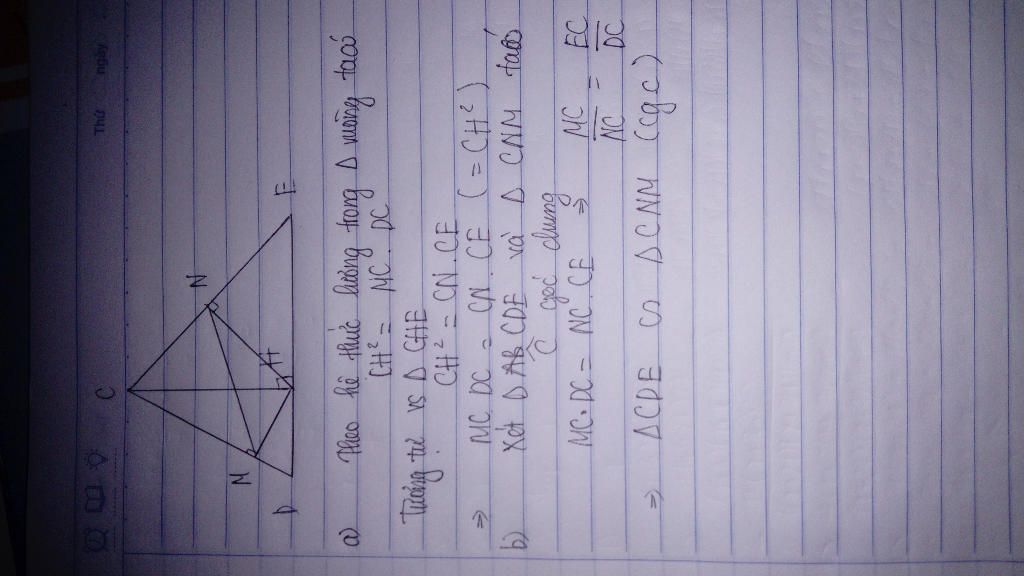 Thứ ngày
C
N
M
H
D
E
a) Theo hệ thức lượng trong Δ vuông ta có
CH² = MC. DC
Tương tự vs Δ CHE
CH² = CN.CE
⇒ MC. DC = CN. CE ( = CH² )
b) Xét Δ CDE và Δ CNM ta có
Ĉ góc chung
MC.DC = NC.CE ⇒ MC/NC = EC/DC
⇒ ΔCDE ∽ ΔCNM (cgc)